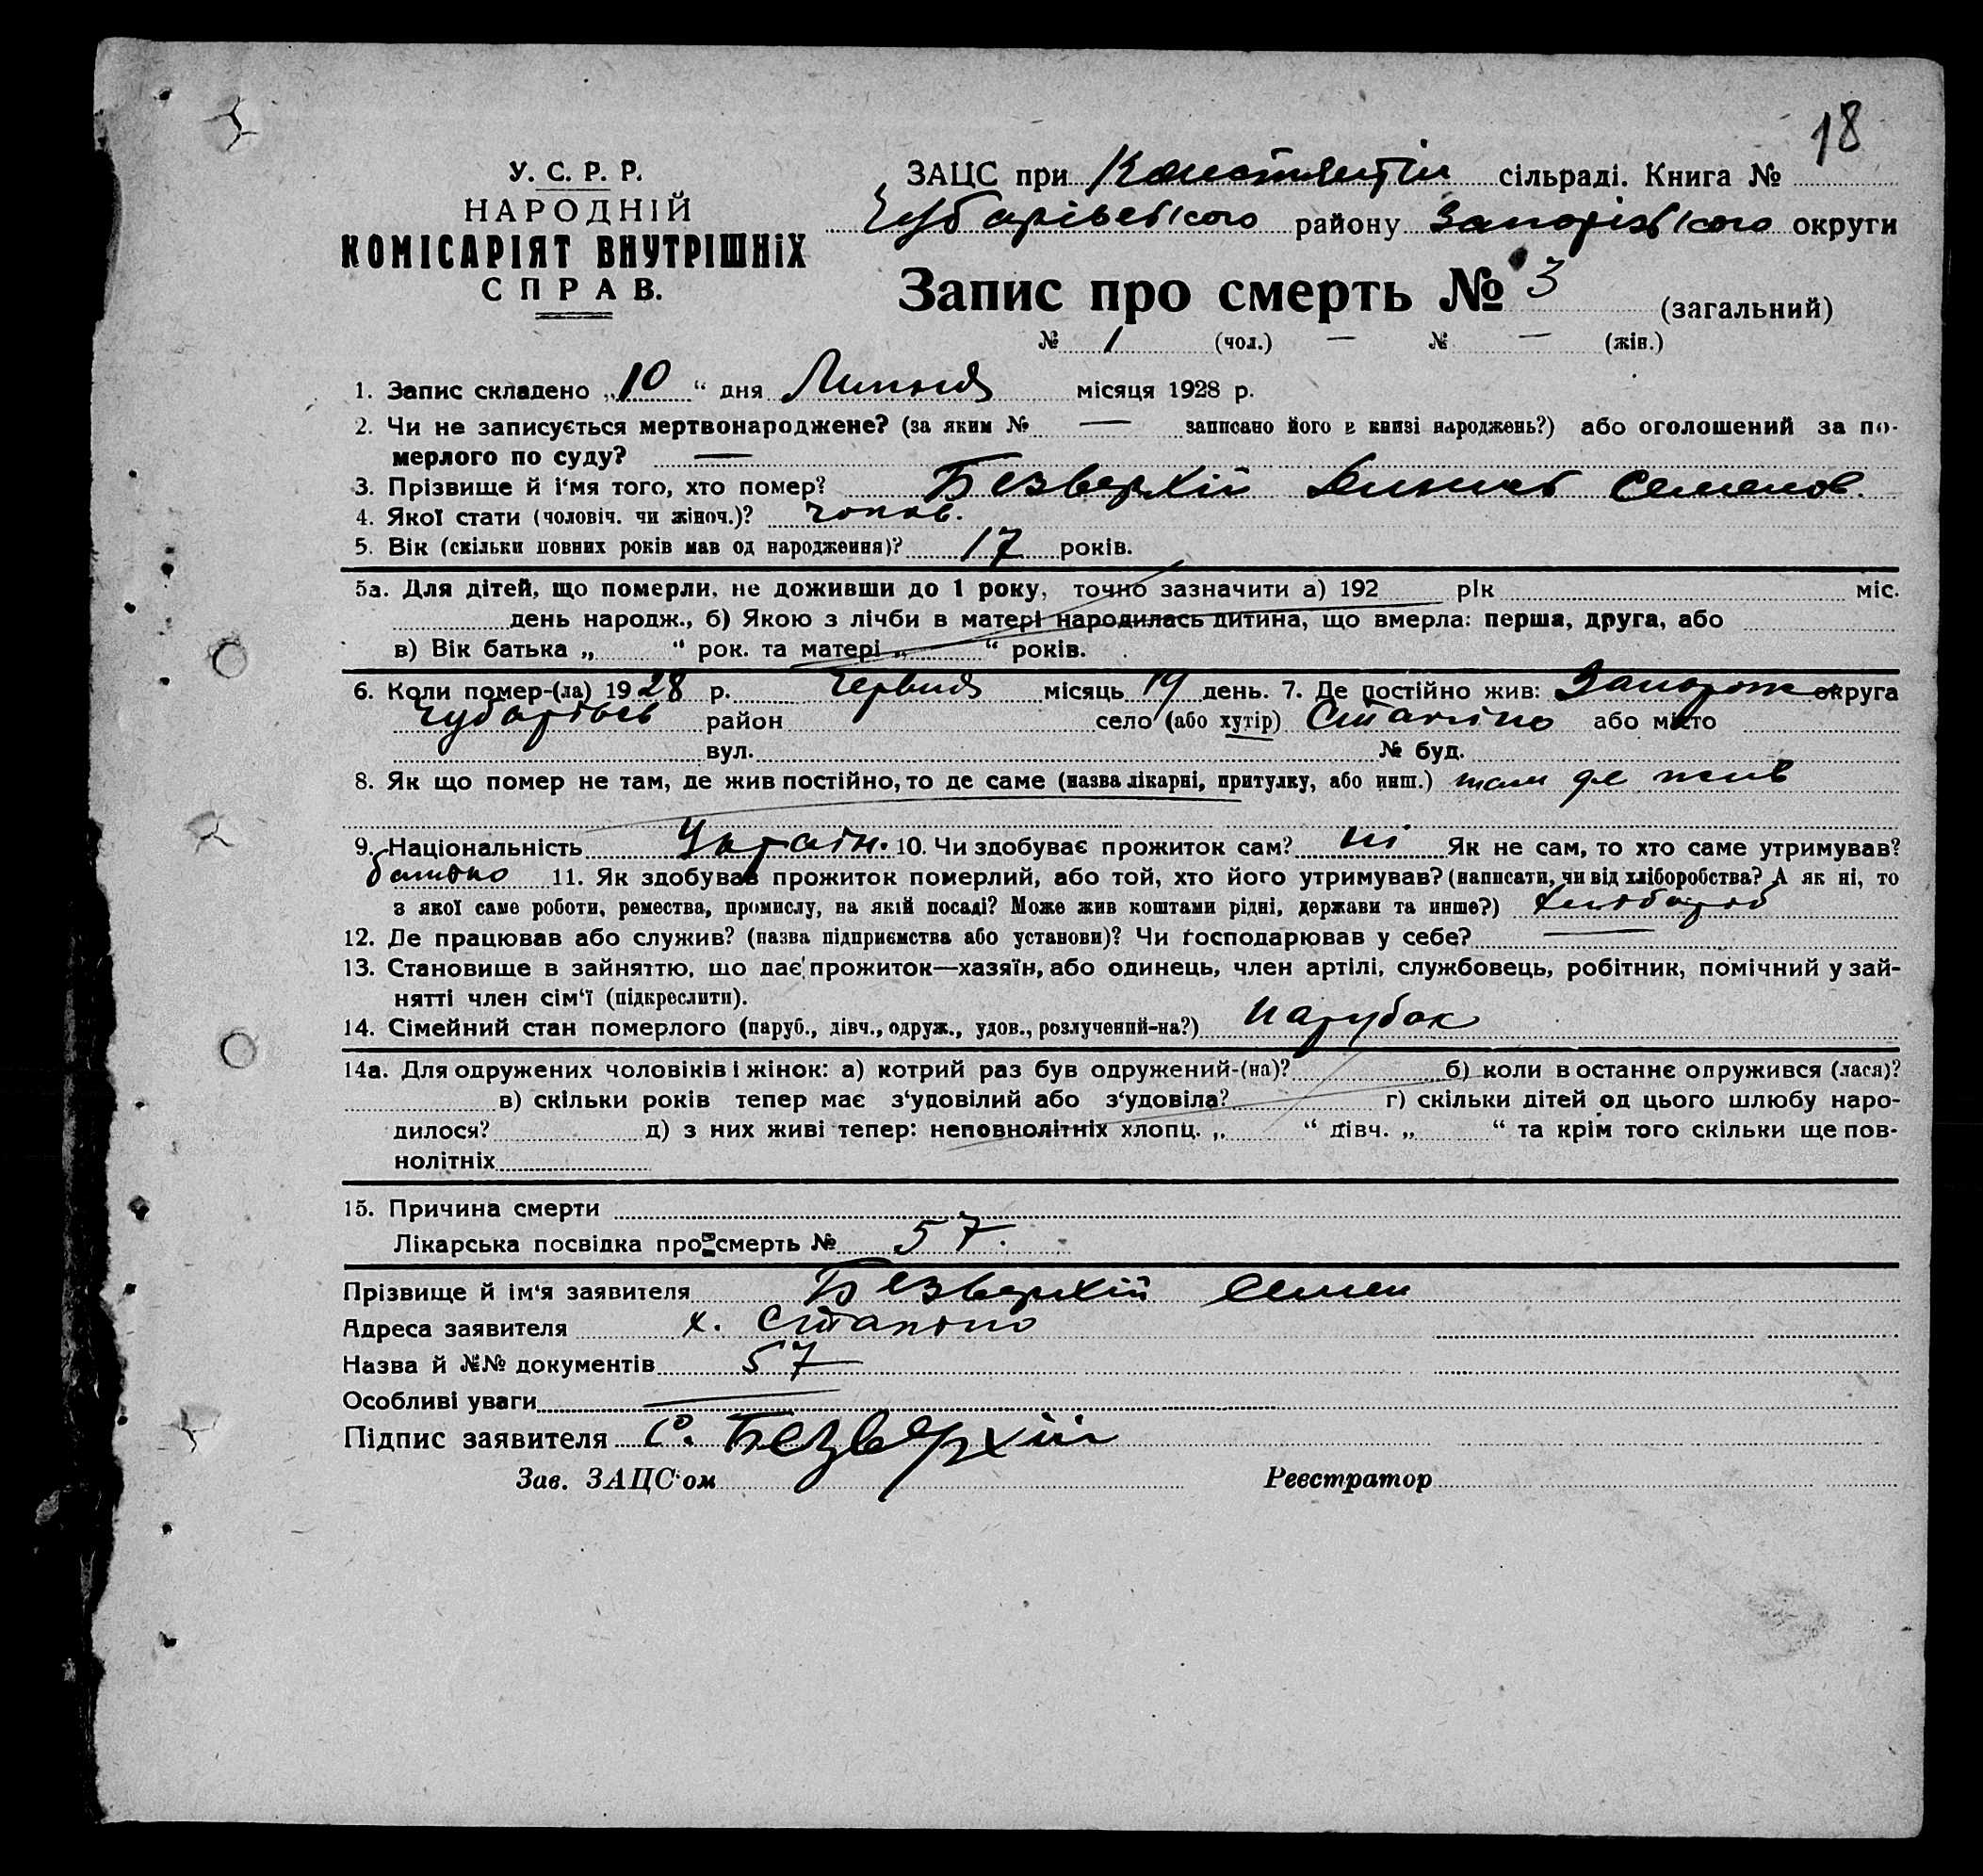 18
У. С. Р. Р.
НАРОДНІЙ
КОМІСАРІЯТ ВНУТРІШНІХ
СПРАВ.
ЗАЦС при Констянтін сільраді. Книга №
Чубарівського району Запорізького округи
Запис про смерть № 3 (загальний)
№ 1 (чол.) — № — (жін.)
1. Запис складено „10“ дня Липня місяця 1928 р.
2. Чи не записується мертвонароджене? (за яким № — записано його в книзі народжень?) або оголошений за по-
мерлого по суду? —
3. Прізвище й і‘мя того, хто помер? Безверхій Семенов.
4. Якої стати (чоловіч. чи жіноч.)? чолов.
5. Вік (скільки повних років мав од народження)? 17 років.
5а. Для дітей, що померли, не доживши до 1 року, точно зазначити а) 192 рік міс.
день народж., б) Якою з лічби в матері народилась дитина, що вмерла: перша, друга, або
в) Вік батька „ “ рок. та матері „ “ років.
6. Коли помер-(ла) 1928 р. червня місяць 19 день. 7. Де постійно жив: Запорож округа
Чубарівсь район село (або хутір) або місто
вул. № буд.
8. Як що помер не там, де жив постійно, то де саме (назва лікарні, притулку, або инш.) там де жив
9. Національність Україн. 10. Чи здобуває прожиток сам? ні Як не сам, то хто саме утримував?
батько 11. Як здобував прожиток померлий, або той, хто його утримував? (написати, чи від хліборобства? А як ні, то
з якої саме роботи, ремества, промислу, на якій посаді? Може жив коштами рідні, держави та инше?) хлібороб
12. Де працював або служив? (назва підприємства або установи)? Чи господарював у себе? —
13. Становище в зайняттю, що дає прожиток—хазяїн, або одинець, член артілі, службовець, робітник, помічний у зай-
нятті член сім‘ї (підкреслити).
14. Сімейний стан померлого (паруб., дівч., одруж., удов., розлучений-на?) парубок
14а. Для одружених чоловіків і жінок: а) котрий раз був одружений-(на)? б) коли в останнє одружився (лася)?
в) скільки років тепер має з‘удовілий або з‘удовіла? г) скільки дітей од цього шлюбу наро-
дилося? д) з них живі тепер: неповнолітніх хлопц. „ “ дівч. „ “ та крім того скільки ще пов-
нолітніх
15. Причина смерти
Лікарська посвідка про смерть № 57.
Прізвище й ім‘я заявителя Безверхій Семен
Адреса заявителя х.
Назва й №№ документів 57
Особливі уваги —
Підпис заявителя С. Безверхій
Зав. ЗАЦС‘ом Реєстратор